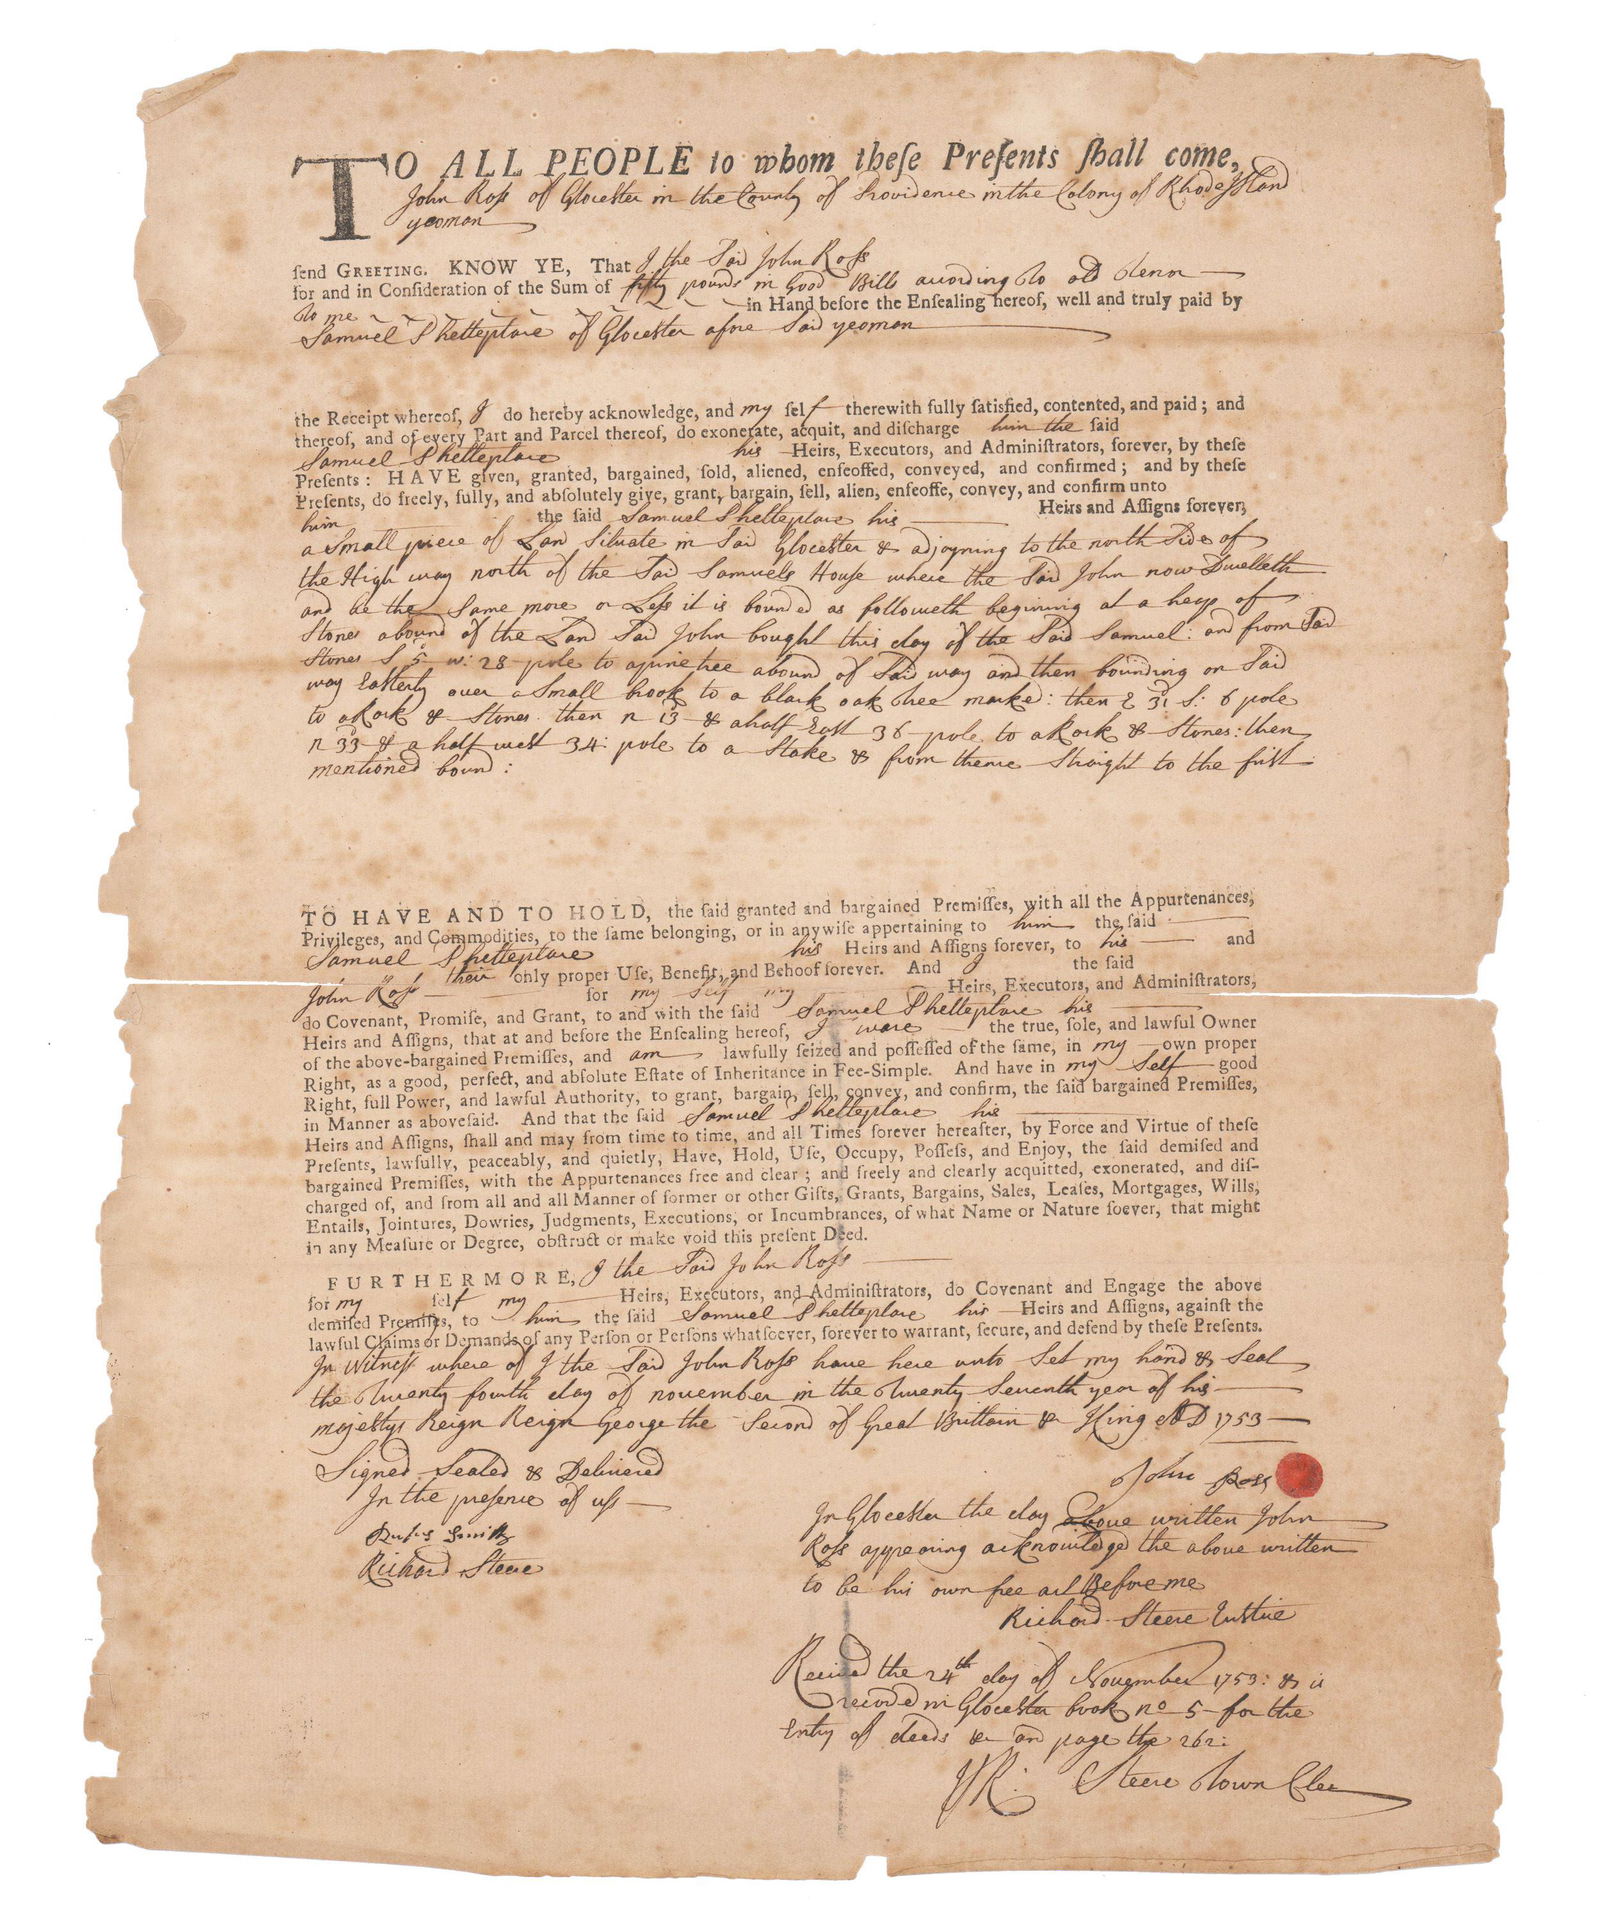 TO ALL PEOPLE to whom theſe Preſents ſhall come,
John Roſs of Glocester in the County of Providence in the Colony of Rhode Island
yeoman
ſend GREETING. KNOW YE, That I the Said John Roſs
for and in Conſideration of the Sum of fifty pounds in Good Bills acording to old tenor
to me in Hand before the Enſealing hereof, well and truly paid by
Samuel Shetteplace of Glocester afore Said yeoman
the Receipt whereof, I do hereby acknowledge, and my ſelf therewith fully ſatisfied, contented, and paid; and
thereof, and of every Part and Parcel thereof, do exonerate, acquit, and diſcharge him the ſaid
Samuel Shetteplace his Heirs, Executors, and Adminiſtrators, forever, by theſe
Preſents: HAVE given, granted, bargained, ſold, aliened, enfeoffed, conveyed, and confirmed; and by theſe
Preſents, do freely, fully, and abſolutely give, grant, bargain, ſell, alien, enfeoffe, convey, and confirm unto
him the ſaid Samuel Shetteplace his Heirs and Aſſigns forever,
a Small piece of Land Situate in Said Glocester & adjoyning to the north Side of
the High way north of the Said Samuels House where the Said John now Dwelleth
and be the Same more or Leſs it is bounded as followeth begining at a heap of
Stones abound of the Land Said John bought this day of the Said Samuel: and from Said
Stones S 5 w: 28 pole to a pine tree abound of Said way and then bounding on Said
way Easterly over a Small brook to a black oak tree marke: then E 31 S: 6 pole
to a Rock & Stones then n 13 & a half East 36 pole to a Rock & Stones: then
n 33 & a half west 34: pole to a Stake & from thence Straight to the first
mentioned bound:
TO HAVE AND TO HOLD, the ſaid granted and bargained Premiſſes, with all the Appurtenances,
Privileges, and Commodities, to the ſame belonging, or in anywiſe appertaining to him the ſaid
Samuel Shetteplace his Heirs and Aſſigns forever, to his and
their only proper Uſe, Benefit, and Behoof forever. And I the ſaid
John Roſs for my Self my Heirs, Executors, and Adminiſtrators,
do Covenant, Promiſe, and Grant, to and with the ſaid Samuel Shetteplace his
Heirs and Aſſigns, that at and before the Enſealing hereof, I ware the true, ſole, and lawful Owner
of the above-bargained Premiſſes, and am lawfully ſeized and poſſeſſed of the ſame, in my own proper
Right, as a good, perfect, and abſolute Eſtate of Inheritance in Fee-Simple. And have in my Self good
Right, full Power, and lawful Authority, to grant, bargain, ſell, convey, and confirm, the ſaid bargained Premiſſes,
in Manner as aboveſaid. And that the ſaid Samuel Shetteplace his
Heirs and Aſſigns, ſhall and may from time to time, and all Times forever hereafter, by Force and Virtue of theſe
Preſents, lawfully, peaceably, and quietly, Have, Hold, Uſe, Occupy, Poſſeſs, and Enjoy, the ſaid demiſed and
bargained Premiſſes, with the Appurtenances free and clear; and freely and clearly acquitted, exonerated, and diſ-
charged of, and from all and all Manner of former or other Gifts, Grants, Bargains, Sales, Leaſes, Mortgages, Wills,
Entails, Jointures, Dowries, Judgments, Executions, or Incumbrances, of what Name or Nature ſoever, that might
in any Meaſure or Degree, obſtruct or make void this preſent Deed.
FURTHERMORE, I the Said John Roſs
for my ſelf my Heirs, Executors, and Adminiſtrators, do Covenant and Engage the above
demiſed Premiſes, to him the ſaid Samuel Shetteplace his Heirs and Aſſigns, againſt the
lawful Claims or Demands of any Perſon or Perſons whatſoever, forever to warrant, ſecure, and defend by theſe Preſents.
In Witneſs where of I the Said John Roſs have here unto Set my hand & Seal
the Twenty fourth day of november in the Twenty Seventh year of his
majestys Reign Reign George the Second of Great Brittain & King AD 1753
Signed Sealed & Delivered
In the preſence of uſs
Rufus Smith
Richard Steere
John Ross
In Glocester the day above written John
Roſs appearing acknowledged the above written
to be his own free act Before me
Richard Steere Justice
Received the 24th day of November 1753: & is
recorded in Glocester book no 5 for the
Entry of deeds & and page the 262:
Steere Town Cler